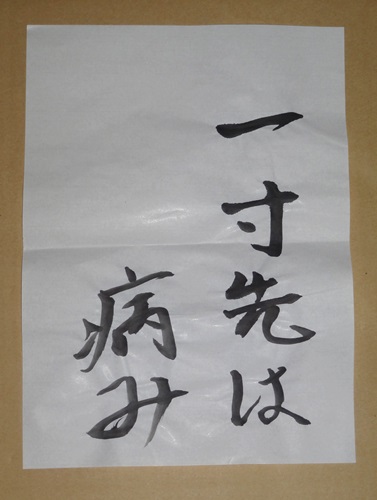 一寸先は
病み